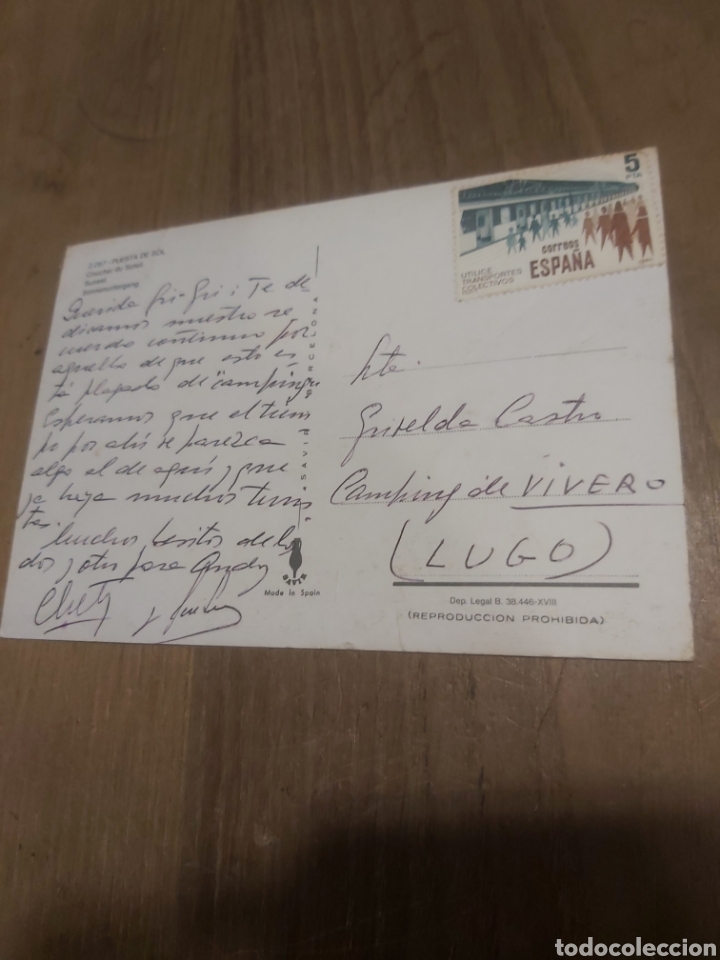 2.267 - PUESTA DE SOL
Coucher du Soleil
Sunset
Sonnenuntergang
Querida Gri-Gri: Te de
dicamos nuestro re
cuerdo continuo por
aquello de que esto es
tá plagado de "camping"
Esperamos que el tiem
po por ahí se parezca
algo al de aquí y que
ya haya muchos turis
tas.
Muchos besitos de los
dos y otro para Andy
y
SAVIR
BARCELONA
Made in Spain
5
PTA
correos
ESPAÑA
UTILICE
TRANSPORTES
COLECTIVOS
Srta.
Griselda Castro
Camping de VIVERO
(LUGO)
Dep. Legal B. 38.446-XVIII
(REPRODUCCION PROHIBIDA)
todocoleccion